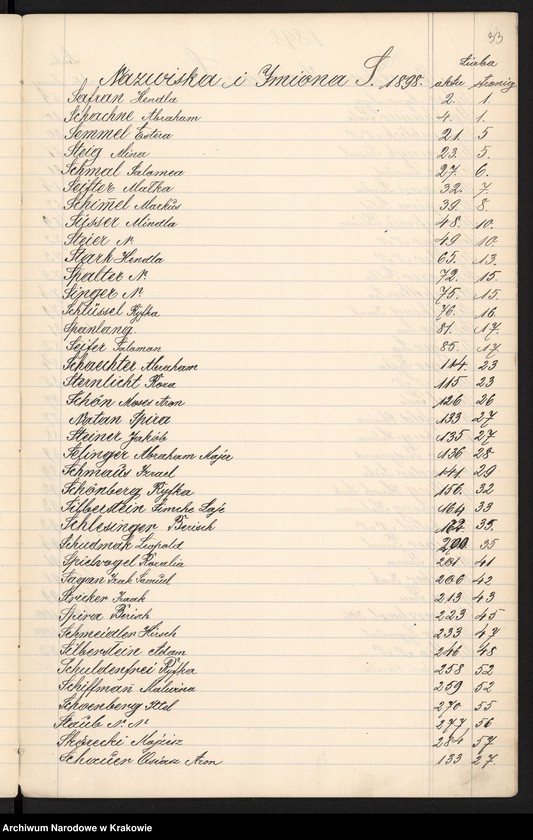 33
Liczba
Nazwiska i Imiona S. 1898. aktu stronic
Safran Hendla 2. 1.
Schachne Abraham 4. 1.
Semmel Estera 21. 5
Steig Mina 23. 5.
Schmal Salomea 27. 6.
Seifter Małka 32. 7.
Schimel Markus 39. 8.
Süsser Mindla 48. 10.
Steier N. 49 10.
Stark Hendla 65. 13.
Spalter N. 72. 15
Singer N. 75. 15.
Schlüssel Ryfka 76. 16
Spanlang. 81. 17.
Seifer Salomon 85. 17
Schaechter Abraham 114. 23
Sternlicht Roza 115 23
Schön Moses Aron 126 26
Natan Spira 133 27
Steiner Jakób 135 27
Selinger Abraham Majer 136 28
Schmaus Izrael 141. 29
Schönberg Ryfka 156. 32
Silberstein 164 33
Schlesinger Berisch 35.
Schudmak Leopold 200 35
Spielvogel Rozalia 201 41
Sagan Izak Samuel 206 42
Stricker Izaak 213 43
Spira Berisch 223 45
Schmeidler Hirsch 233 47
Silberstein Adam 246 48
Schuldenfrei Ryfka 258 52
Schiffman Malwina 259 52
Schoenberg Ettel 270 55
Staub N. N. 277 56
Skórecki Mojżesz 284 57
Schauer Aron 133 27.
Archiwum Narodowe w Krakowie